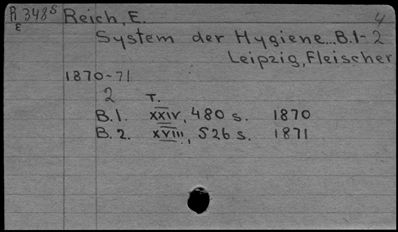 R 348s Reich, E. 4
E
System der Hygiene... B.1-2
Leipzig, Fleischer
1870-71
2 T.
B.1. XXIV, 480 s. 1870
B.2. XVIII, 526 s. 1871